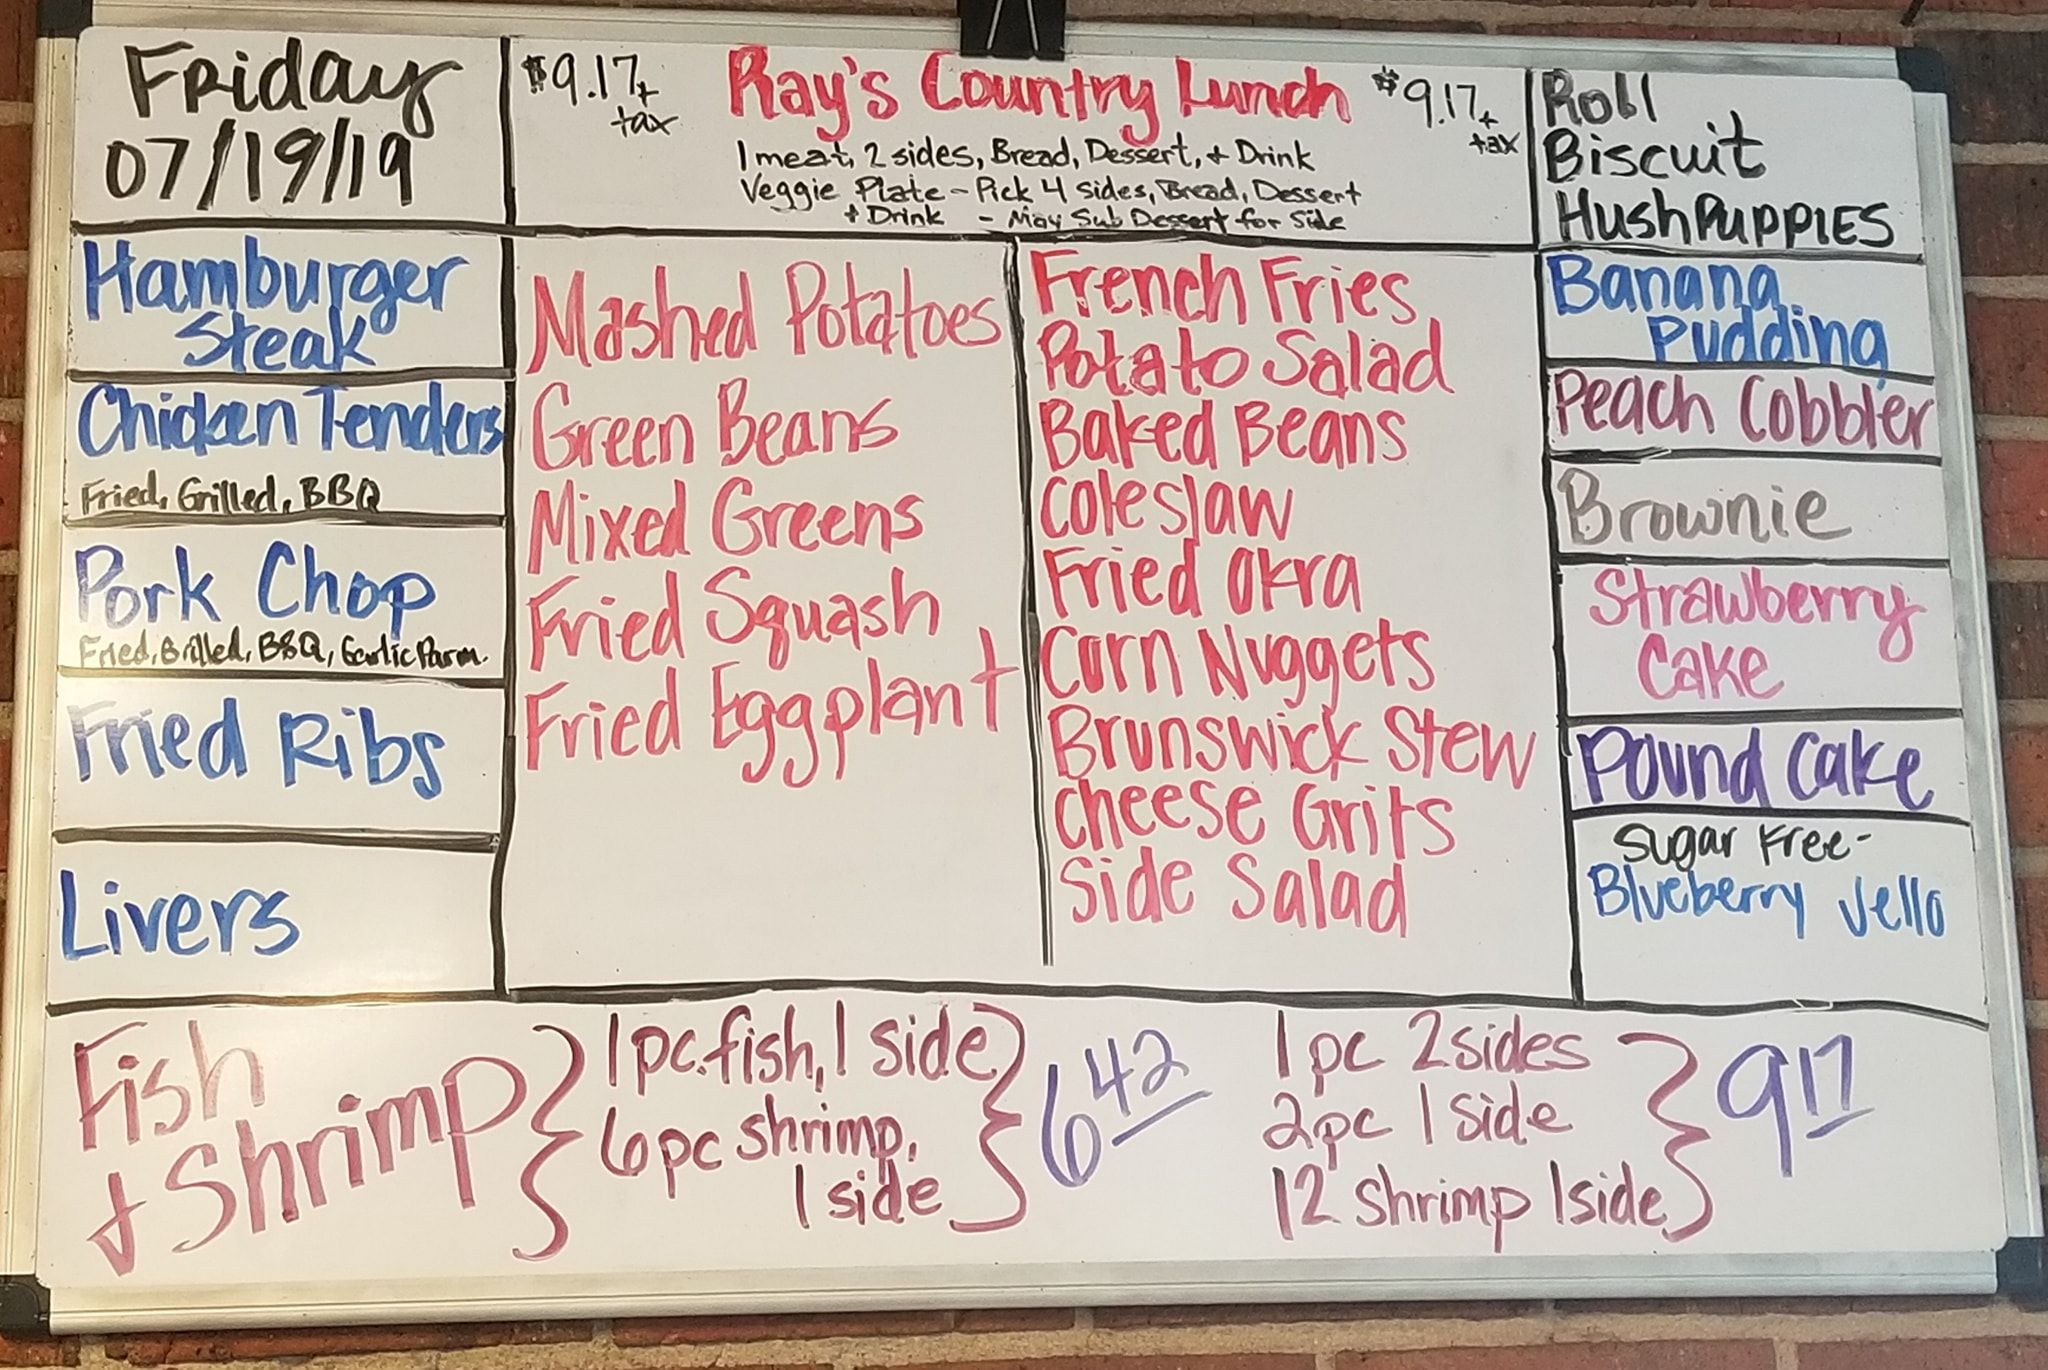 Friday
07/19/19
$9.17+
tax
Ray's Country Lunch
$9.17+
tax
1 meat, 2 sides, Bread, Dessert, + Drink
Veggie Plate - Pick 4 sides, Bread, Dessert
+ Drink - May Sub Dessert for Side
Roll
Biscuit
HushPuppies
Hamburger
Steak
Chicken Tenders
Fried, Grilled, BBQ
Pork Chop
Fried, Grilled, BBQ, Garlic Parm.
Fried Ribs
Livers
Mashed Potatoes
Green Beans
Mixed Greens
Fried Squash
Fried Eggplant
French Fries
Potato Salad
Baked Beans
Coleslaw
Fried Okra
Corn Nuggets
Brunswick Stew
Cheese Grits
Side Salad
Banana
Pudding
Peach Cobbler
Brownie
Strawberry
Cake
Pound Cake
Sugar Free-
Blueberry Jello
Fish
+ Shrimp
1 pc. fish, 1 side
6 pc shrimp,
1 side
6 42
1 pc 2 sides
2 pc 1 side
12 Shrimp 1 side
9 17